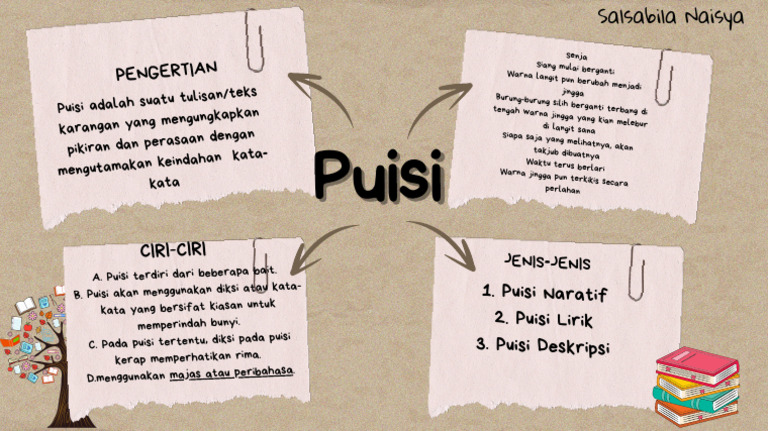 Salsabila Naisya
PENGERTIAN
Puisi adalah suatu tulisan/teks
karangan yang mengungkapkan
pikiran dan perasaan dengan
mengutamakan keindahan kata-
kata
senja
Siang mulai berganti
Warna langit pun berubah menjadi
jingga
Burung-burung silih berganti terbang di
tengah warna jingga yang kian melebur
di langit sana
Siapa saja yang melihatnya, akan
takjub dibuatnya
Waktu terus berlari
Warna jingga pun terkikis secara
perlahan
Puisi
CIRI-CIRI
A. Puisi terdiri dari beberapa bait.
B. Puisi akan menggunakan diksi atau kata-
kata yang bersifat kiasan untuk
memperindah bunyi.
C. Pada puisi tertentu, diksi pada puisi
kerap memperhatikan rima.
D.menggunakan majas atau peribahasa.
JENIS-JENIS
1. Puisi Naratif
2. Puisi Lirik
3. Puisi Deskripsi